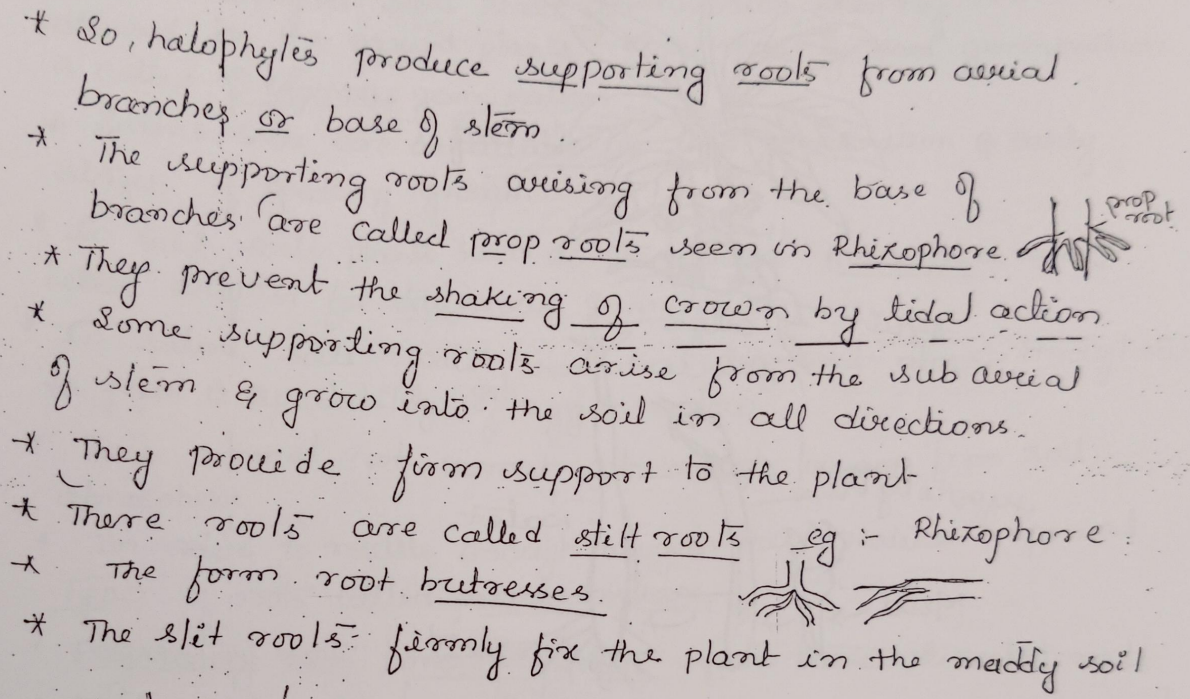 * So, halophytes produce supporting roots from aerial
branches or base of stem.
* The supporting roots arising from the base of
branches are called prop roots seen in Rhizophore
prop
root
* They prevent the shaking of crown by tidal action
* Some supporting roots arise from the sub aerial
of stem & grow into the soil in all directions.
* They provide firm support to the plant
* There roots are called stilt roots eg :- Rhizophore :
* The form root butresses.
* The slit roots firmly fix the plant in the maddy soil